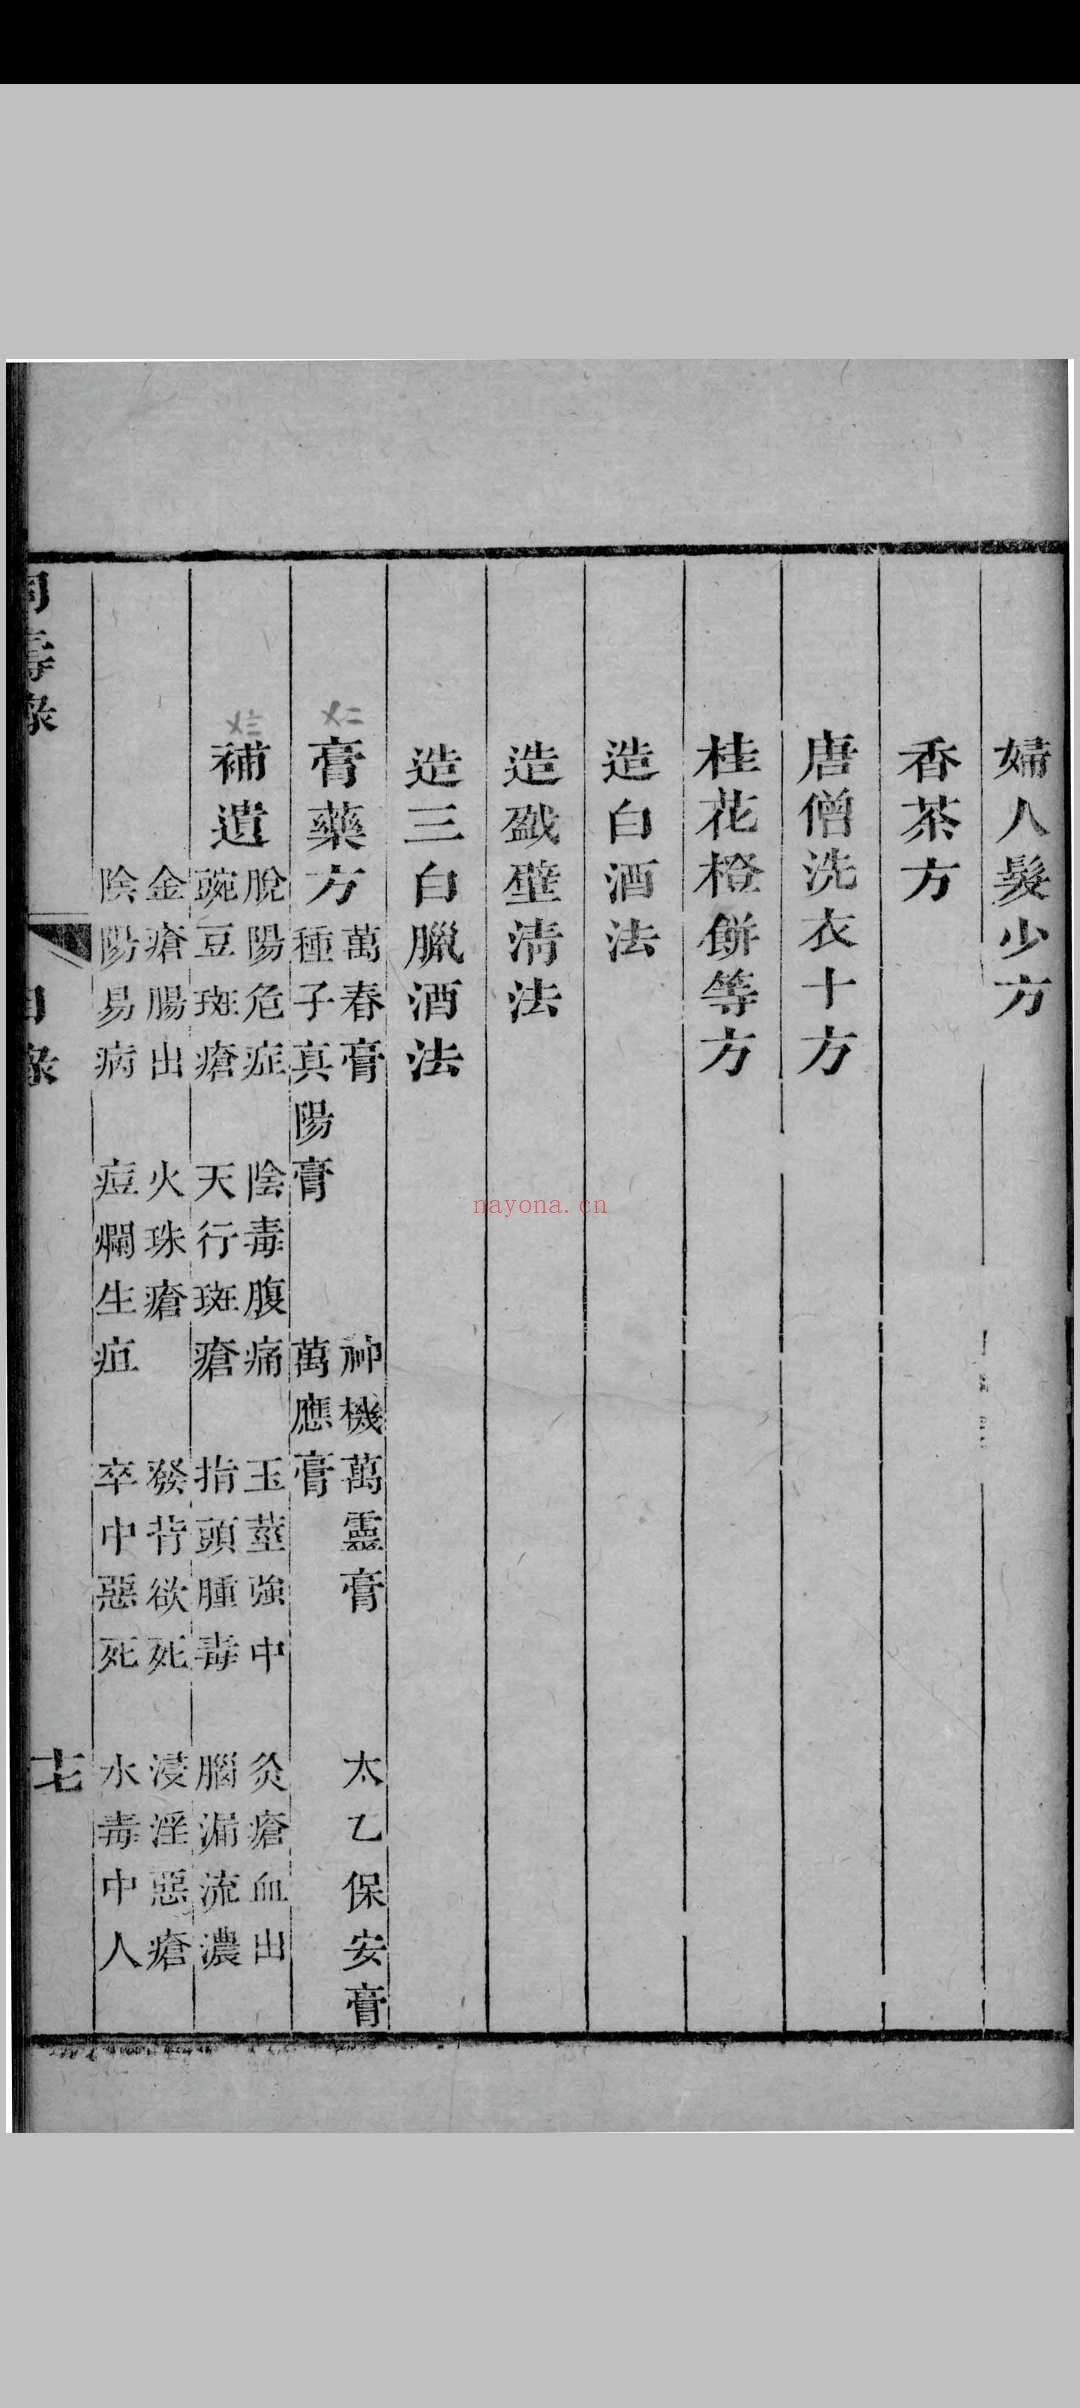 婦人髮少方
香茶方
唐僧洗衣十方
桂花橙餅等方
造白酒法
造壁清法
造三白臘酒法
〤二
膏藥方
萬春膏 神機萬靈膏 太乙保安膏
種子真陽膏 萬應膏
〤三
補遺
脫陽危症 陰毒腹痛 玉莖強中 灸瘡血出
豌豆斑瘡 天行斑瘡 指頭腫毒 腦漏流濃
金瘡腸出 火珠瘡 發背欲死 浸淫惡瘡
陰陽易病 痘爛生疽 卒中惡死 水毒中人
壽錄
目錄
十七
nayona.cn